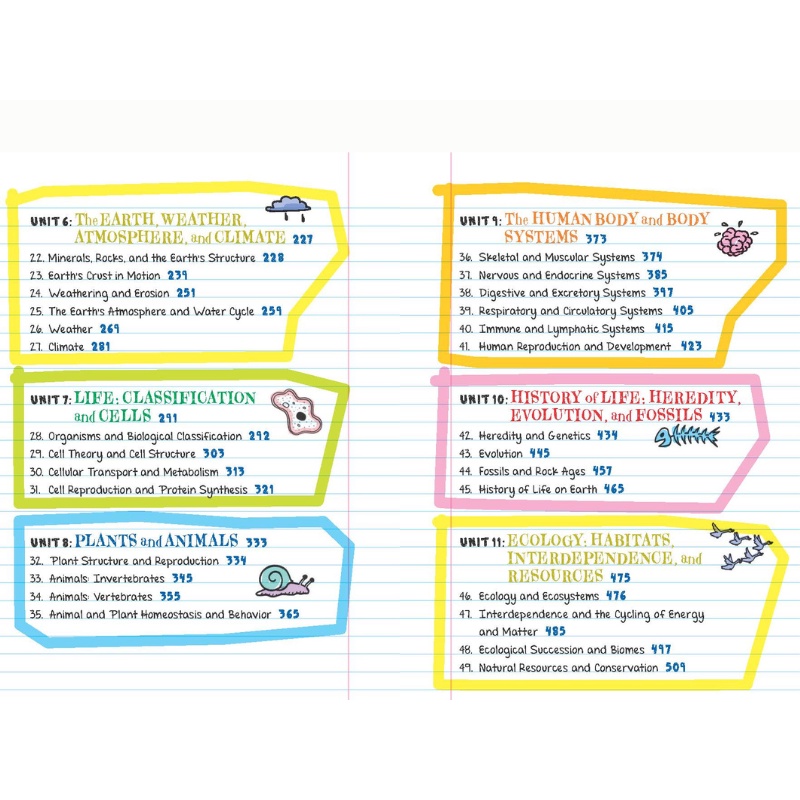 UNIT 6: The EARTH, WEATHER,
ATMOSPHERE, and CLIMATE 227
22. Minerals, Rocks, and the Earth's Structure 228
23. Earth's Crust in Motion 239
24. Weathering and Erosion 251
25. The Earth's Atmosphere and Water Cycle 259
26. Weather 269
27. Climate 281
UNIT 7: LIFE: CLASSIFICATION
and CELLS 291
28. Organisms and Biological Classification 292
29. Cell Theory and Cell Structure 303
30. Cellular Transport and Metabolism 313
31. Cell Reproduction and Protein Synthesis 321
UNIT 8: PLANTS and ANIMALS 333
32. Plant Structure and Reproduction 334
33. Animals: Invertebrates 345
34. Animals: Vertebrates 355
35. Animal and Plant Homeostasis and Behavior 365
UNIT 9: The HUMAN BODY and BODY
SYSTEMS 373
36. Skeletal and Muscular Systems 374
37. Nervous and Endocrine Systems 385
38. Digestive and Excretory Systems 397
39. Respiratory and Circulatory Systems 405
40. Immune and Lymphatic Systems 415
41. Human Reproduction and Development 423
UNIT 10: HISTORY of LIFE: HEREDITY,
EVOLUTION, and FOSSILS 433
42. Heredity and Genetics 434
43. Evolution 445
44. Fossils and Rock Ages 457
45. History of Life on Earth 465
UNIT 11: ECOLOGY: HABITATS,
INTERDEPENDENCE, and
RESOURCES 475
46. Ecology and Ecosystems 476
47. Interdependence and the Cycling of Energy
and Matter 485
48. Ecological Succession and Biomes 497
49. Natural Resources and Conservation 509